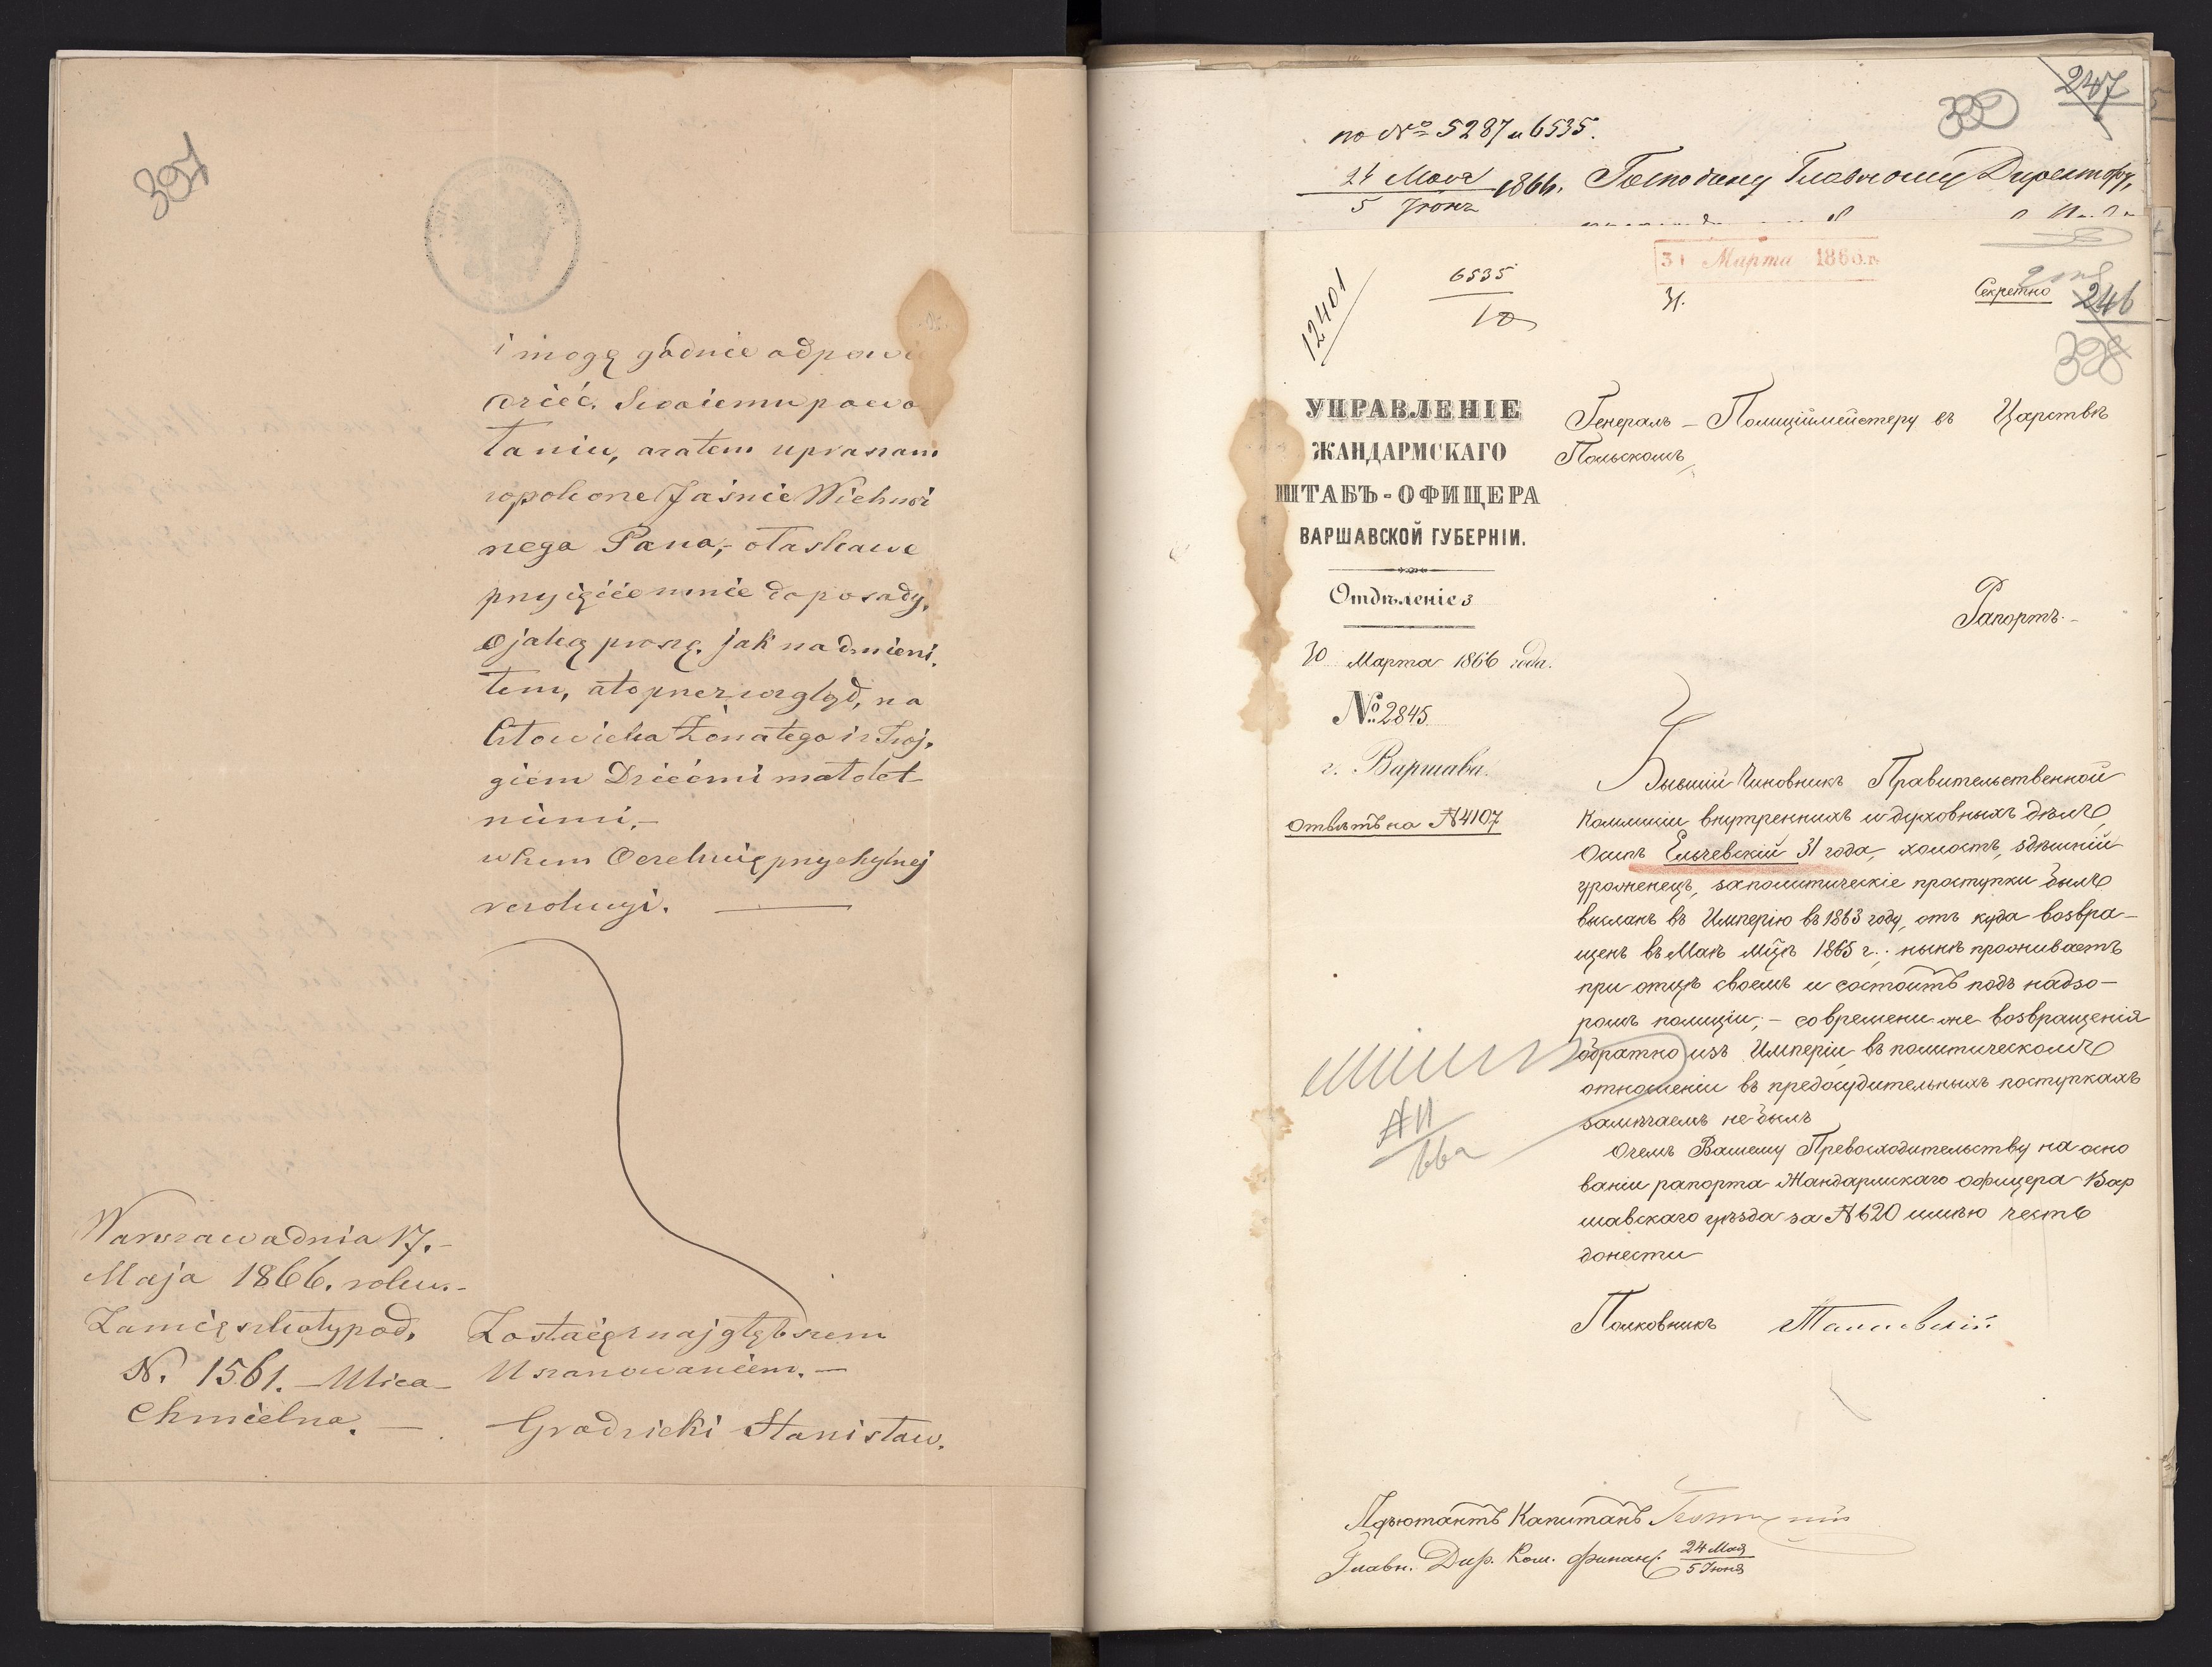 397
i mogę godnie odpowie
dzieć. Swoiemu powo
łaniu, zatem upraszam
wpokorze Jaśnie Wielmoż
nego Pana,- ołaskawe
przyięcie mnie do posady,
o jaką proszę. jak nadmieni.
łem, ato przez wzgląd, na
Człowieka Żonatego i z Troj.
giem Dziećmi małolet
niimi.-
wkim Oczekuię przychylnej
rezolucyi.
Warszawa dnia 17.-
Maja 1866. roku.-
Zamięszkały pod,
N. 1561. - Ulica -
Chmielna. -
Zostaię z najgłębszem
Uszanowaniem. -
Gradzicki Stanisław.
247
по № 5287 и 6535.
24 Мая
5 Іюня 1866.
Господину Главному Директору,
31 Марта 1866 г.
12401
6535
10
31.
Секретно
246
398
УПРАВЛЕНІЕ
ЖАНДАРМСКАГО
ШТАБЪ-ОФИЦЕРА
ВАРШАВСКОЙ ГУБЕРНІИ.
Отдѣленіе 3
30 Марта 1866 года.
№ 2845
г. Варшава.
Отвѣтъ на № 4107
Генералъ - Полиціймейстеру въ Царствѣ
Польскомъ
Рапортъ. -
Бывшій Чиновникъ Правительственной
Коммисіи внутреннихъ и духовныхъ дѣлъ
Осипъ Ельчевскій 31 года, холостъ, здѣшній
уроженецъ, за политическіе проступки былъ
высланъ въ Имперію въ 1863 году, отъ куда возвра-
щенъ въ Маѣ мѣцѣ 1865 г.; нынѣ проживаетъ
при отцѣ своемъ и состоитъ подъ надзо-
ромъ полиціи; - со времени же возвращенія
обратно изъ Имперіи въ политическомъ
отношеніи въ предосудительныхъ поступкахъ
замѣчаемъ не былъ
О чемъ Вашему Превосходительству на осно
ваніи рапорта Жандармскаго офицера Вар
шавскаго уѣзда за № 620 имѣю честь
донести
Полковникъ
Адъютантъ Капитанъ
Главн. Дир. Ком. Финанс. 24 Мая
5 Іюня